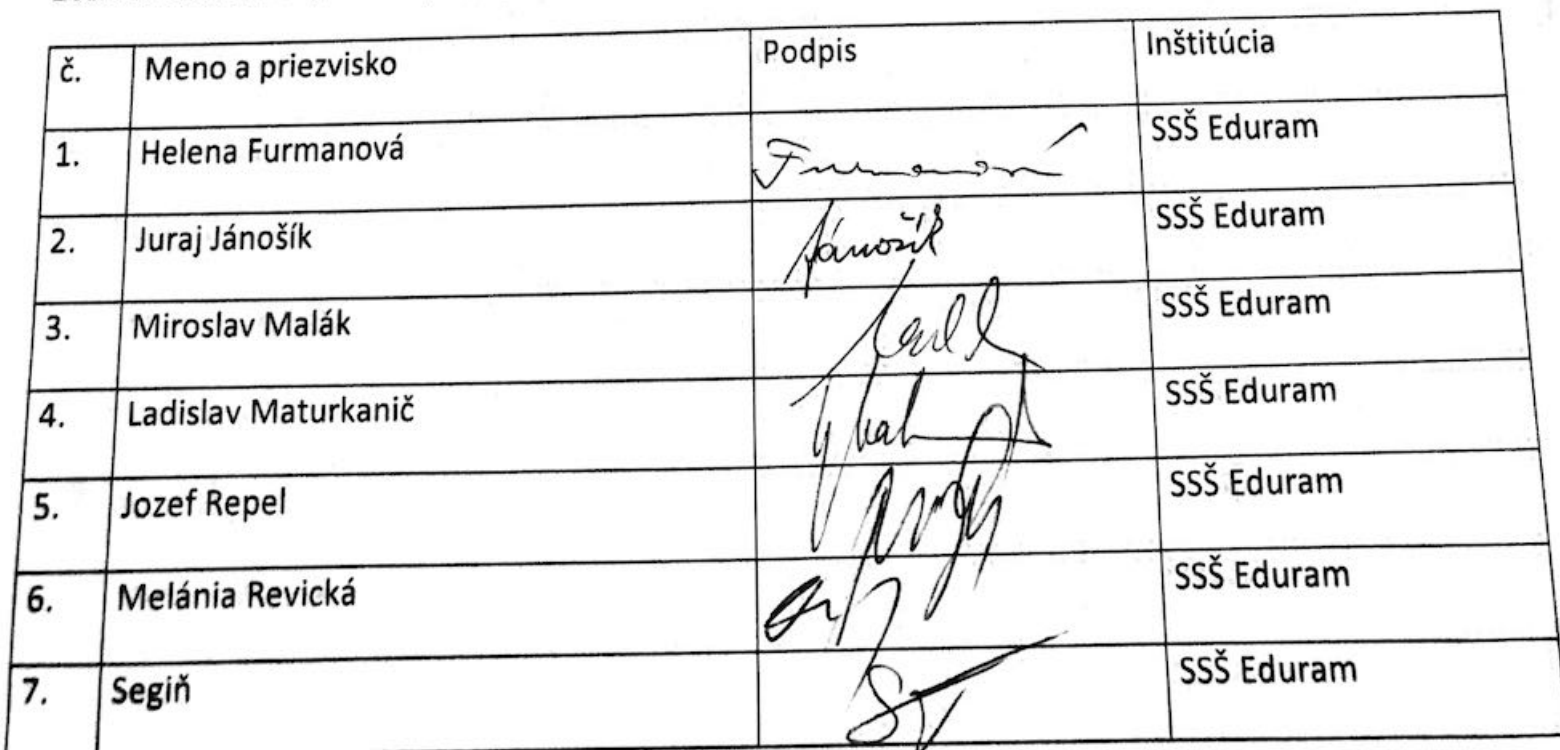 č. Meno a priezvisko Podpis Inštitúcia
1. Helena Furmanová Furmanová SSŠ Eduram
2. Juraj Jánošík Jánošík SSŠ Eduram
3. Miroslav Malák SSŠ Eduram
4. Ladislav Maturkanič SSŠ Eduram
5. Jozef Repel SSŠ Eduram
6. Melánia Revická SSŠ Eduram
7. Segiň SSŠ Eduram